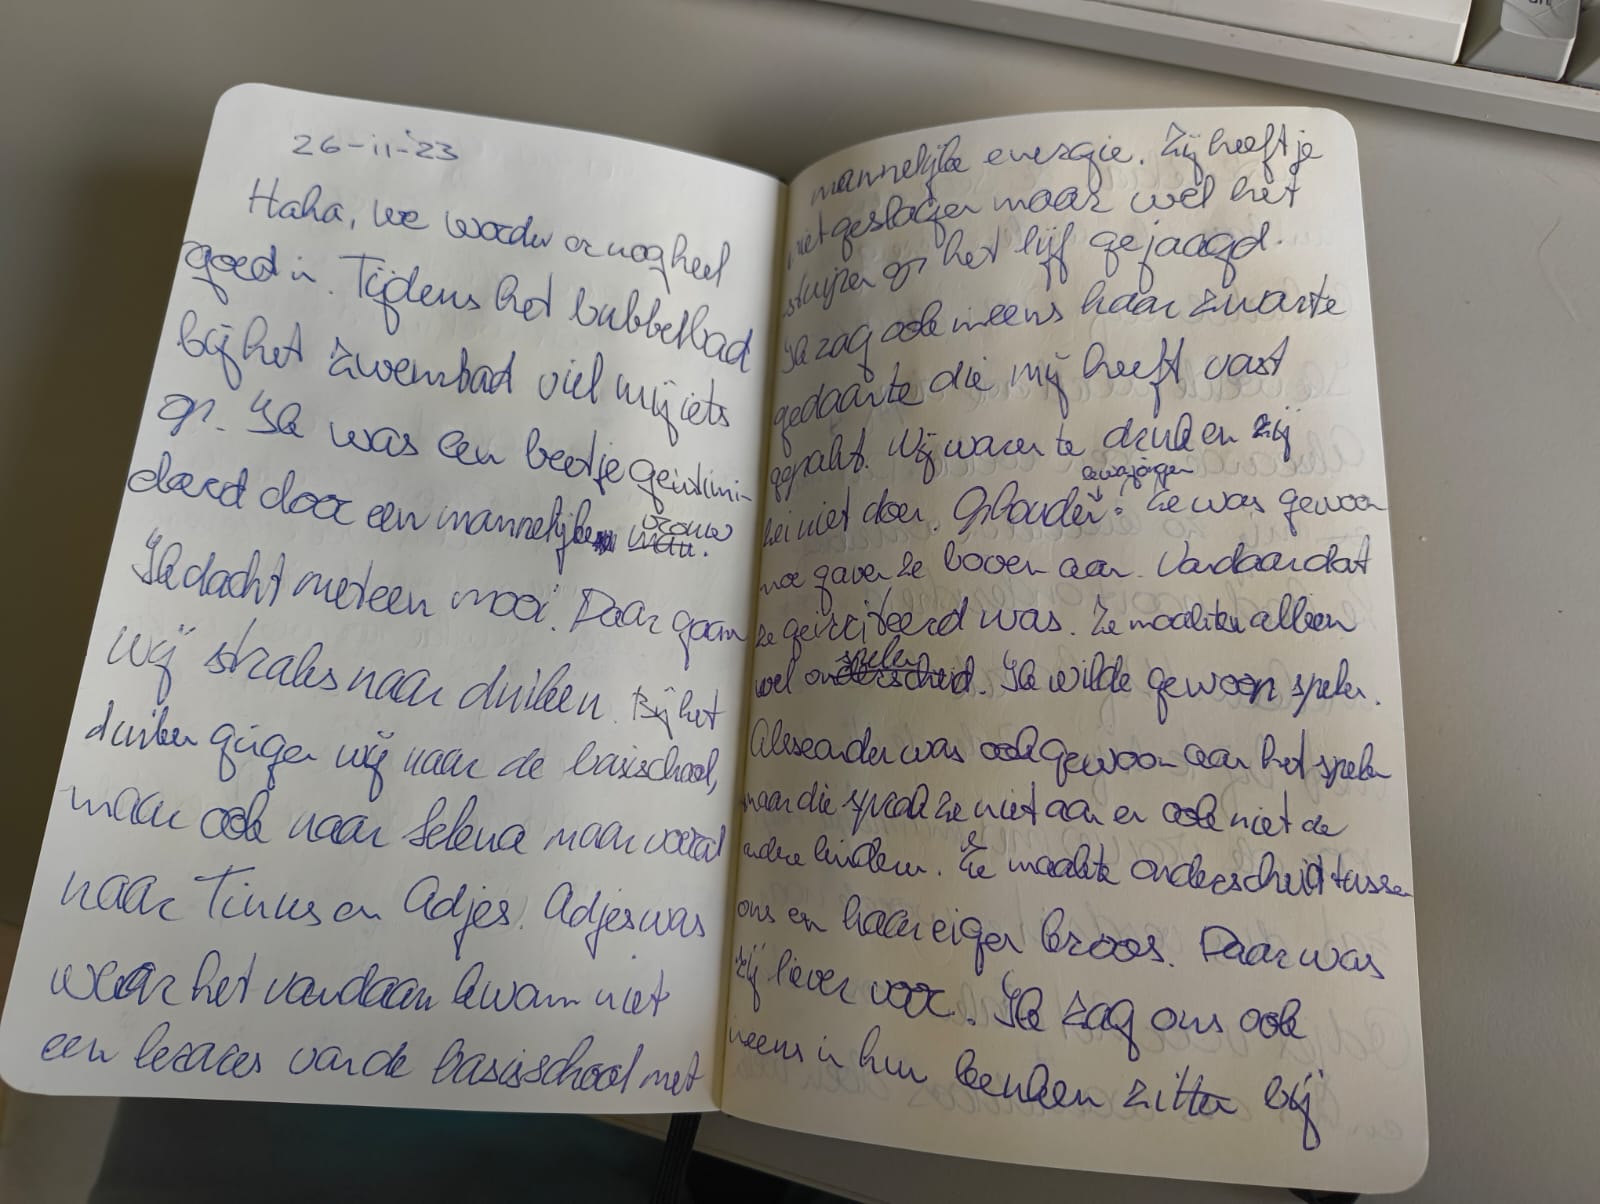 26-11-'23
Haha, we worden er nog heel
goed in. Tijdens het bubbelbad
bij het zwembad viel mij iets
op. Ik was een beetje geintimi-
deerd door een mannelijke vrouw
man.
Ik dacht meteen mooi. Daar gaan
wij straks naar duiken. Bij het
duiken gingen wij naar de basisschool,
maar ook naar Selena maar vooral
naar Tinus en Adjes. Adjes was
waar het vandaan kwam niet
een lerares van de basisschool met
mannelijke energie. Zij heeft je
niet geslagen maar wel het
stuipen op het lijf gejaagd.
Ik zag ook ineens haar zwarte
gedaante die mij heeft vast
gepakt. Wij waren te druk en zij
zei niet doen. Ophouden! Ze was gewoon
moe gaven ze boven aan. Vandaar dat
ze geirriteerd was. Ze maakten alleen
wel onderscheid. Ik wilde gewoon spelen.
Alexander was ook gewoon aan het spelen
maar die sprak ze niet aan en ook niet de
andre kinderen. Ze maakte onderscheid tussen
ons en haar eigen kroos. Daar was
zij liever voor. Ik zag ons ook
ineens in hun keuken zitten bij